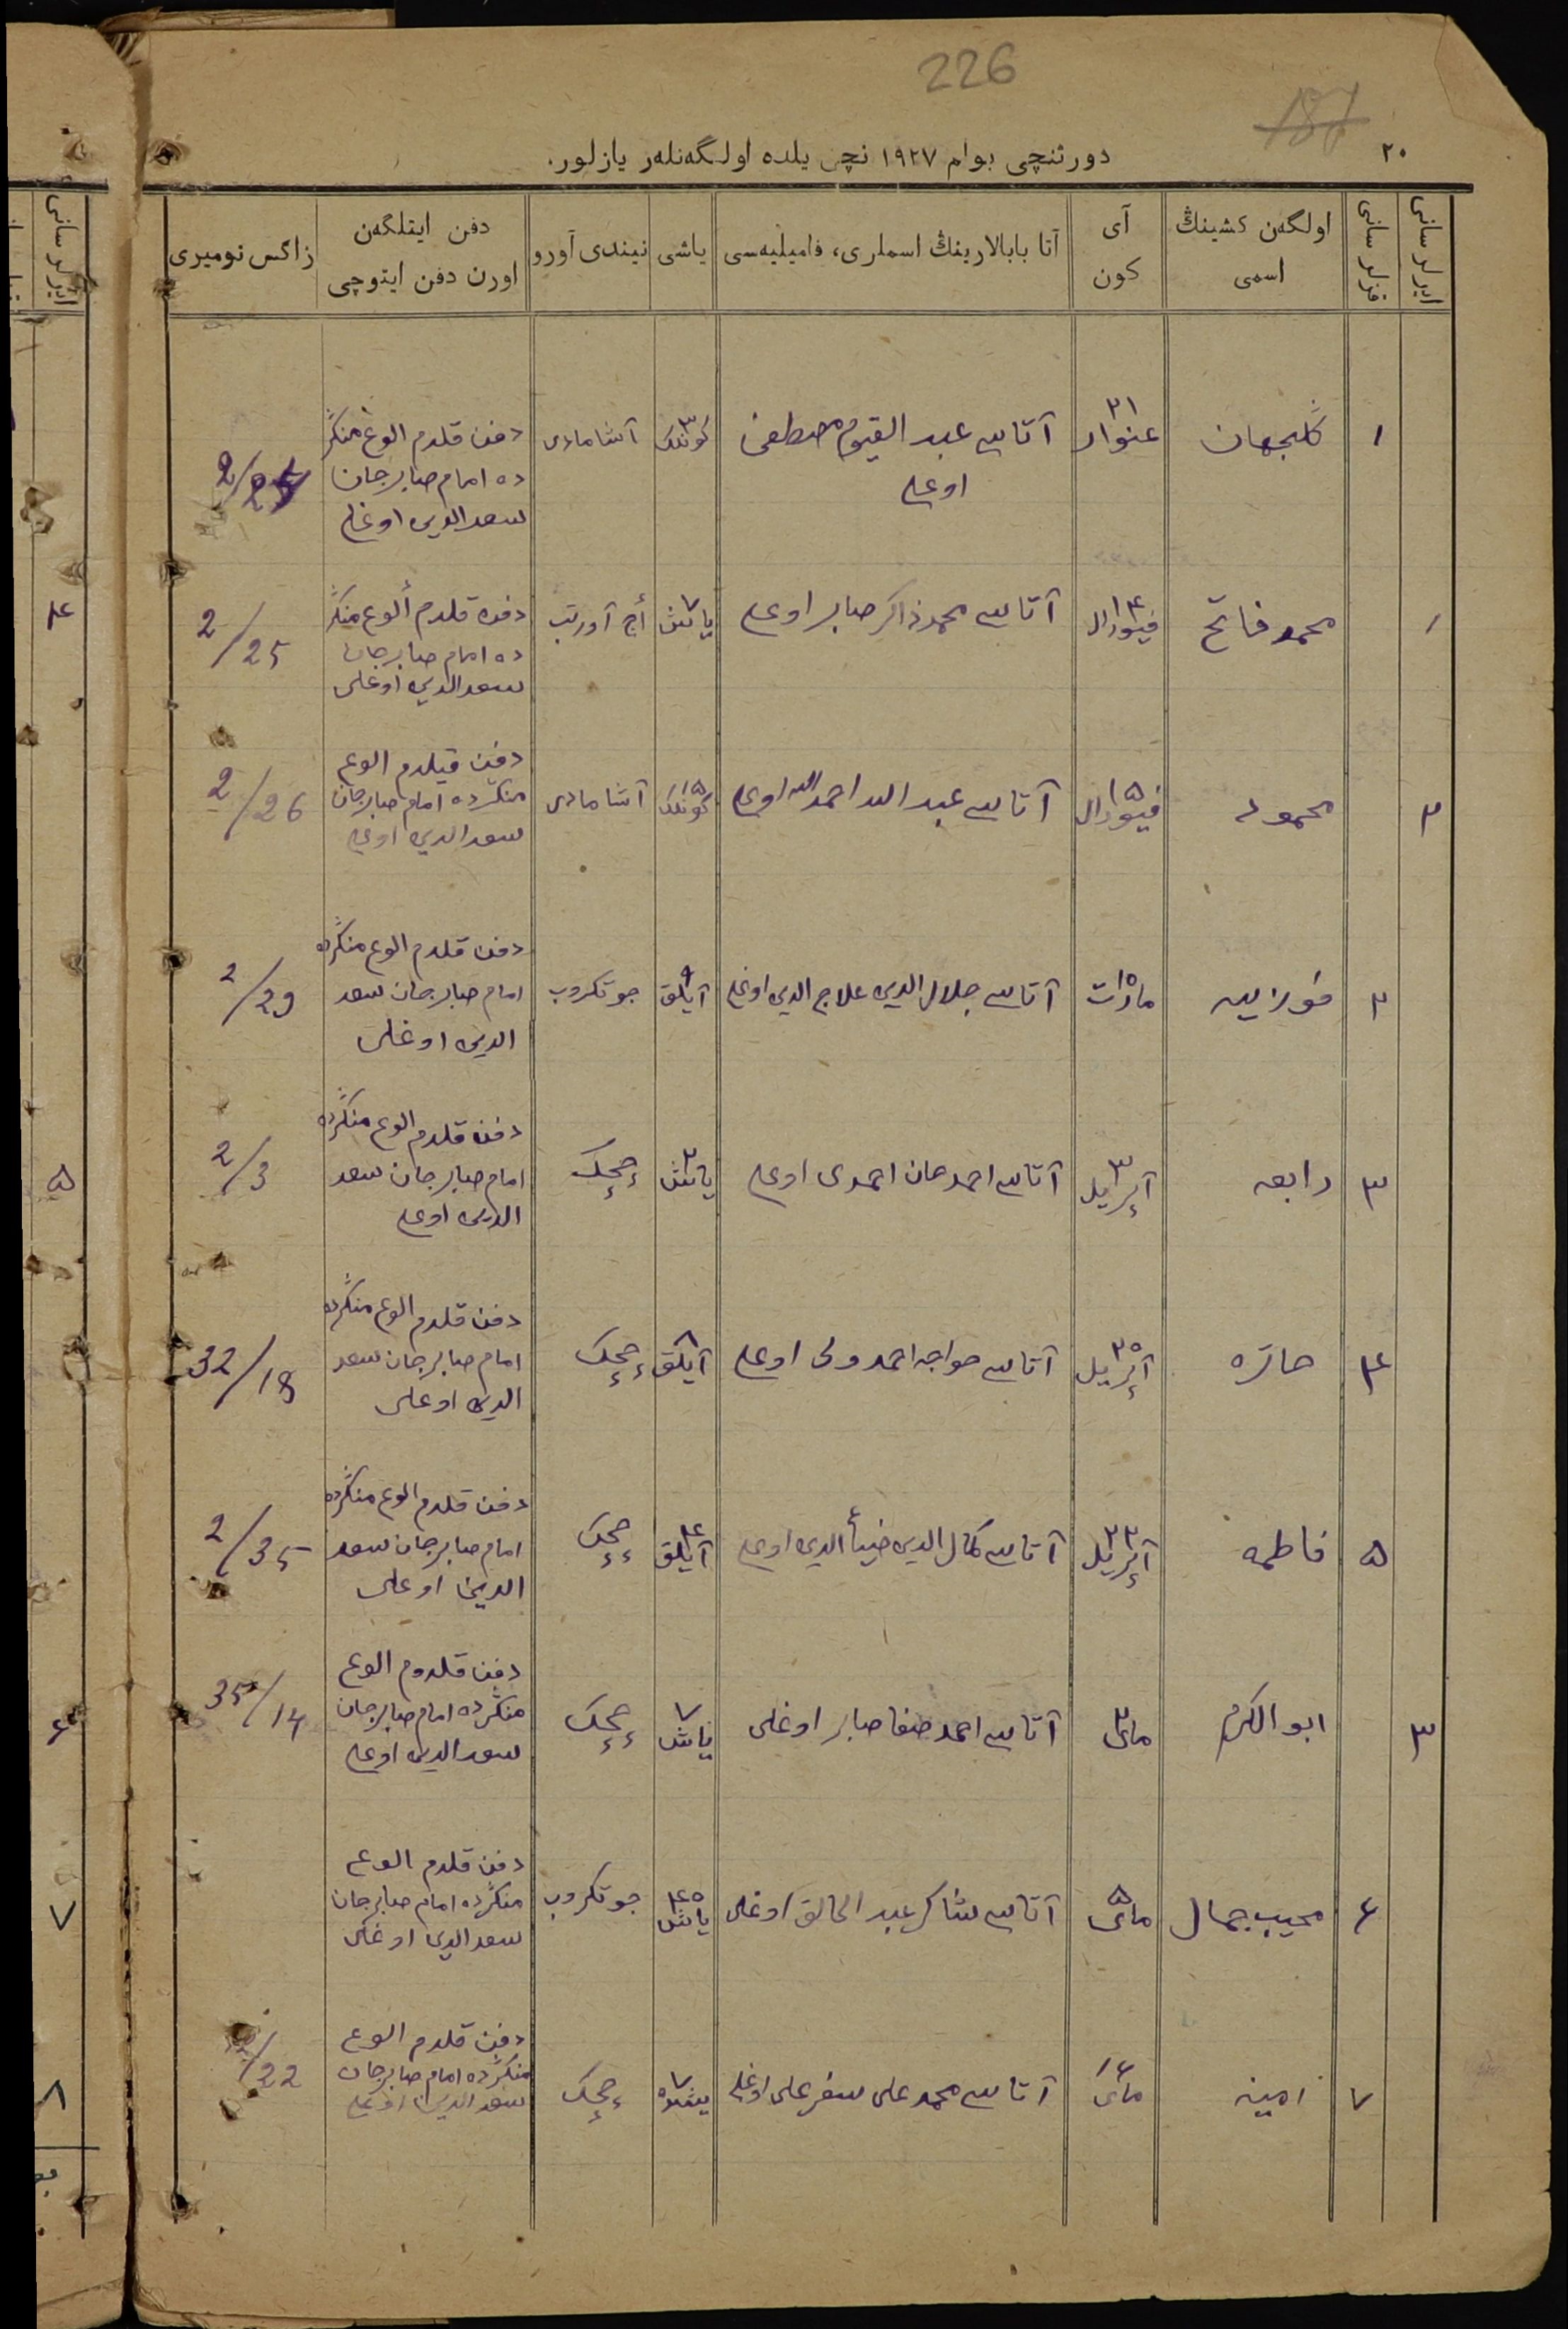 226
187
٢٠
دورتنچی بوام ١٩٢٧ نچی یلده اولگه‌نله‌ر یازلور.
ایرلر سانی
قزلر سانی
اولگه‌ن کشینڭ اسمی
آی کون
آتا بابالارینڭ اسملری، فامیلیه‌سی
یاشی
نیندی آورو
دفن ایتلگه‌ن اورن دفن ایتوچی
زاگس نومیری
١
گلجهان
٣١ عنوار
آتاسی عبد القیوم مصطفی
اوغلی
٣ کونلک
آشامادی
دفن قلدم الوغ منگر
ده امام صابرجان
سعدالدین اوغلی
2/24
١
محمد فاتح
١٤ فیورال
آتاسی محمد ذاکر صابر اوغلی
٧ یاش
اچ آورتب
دفن قلدم ألوغ منگر
ده امام صابرجان
سعدالدین اوغلی
2/25
٢
محمود
١٥ فیورال
آتاسی عبد الله احمدالله اوغلی
١٥ کونلک
آشامادی
دفن قیلدم الوغ
منگرده امام صابرجان
سعد الدین اوغلی
2/26
٢
فوزیه
١٥ مارت
آتاسی جلال الدین علاج الدین اوغلی
٩ آیلق
جوتکروب
دفن قلدم الوغ منگرده
امام صابرجان سعد
الدین اوغلی
2/29
٣
رابعه
٣ آپریل
آتاسی احمدجان احمدی اوغلی
٢ یاش
چچک
دفن قلدم الوغ منگرده
امام صابرجان سعد
الدین اوغلی
2/3
٤
حاتره
٢٥ آپریل
آتاسی خواجه احمد ولی اوغلی
٨ آیلق
چچک
دفن قلدم الوغ منگرده
امام صابرجان سعد
الدین اوغلی
32/18
٥
فاطمه
٢٣ آپریل
آتاسی کمال الدین ضیأ الدین اوغلی
٤ آیلق
چچک
دفن قلدم الوغ منگرده
امام صابرجان سعد
الدین اوغلی
2/35
٣
ابو الکرم
٣ مای
آتاسی احمد صفا صابر اوغلی
٧ یاش
چچک
دفن قلدوم الوغ
منگرده امام صابرجان
سعد الدین اوغلی
35/14
٦
محیب جمال
٥ مای
آتاسی شاکر عبد الخالق اوغلی
٤٥ یاش
جوتکروب
دفن قلدم الوغ
منگرده امام صابرجان
سعد الدین اوغلی
٧
امینه
١٦ مای
آتاسی محمد علی سفر علی اوغلی
٧ یشده
چچک
دفن قلدم الوغ
منگرده امام صابرجان
سعد الدین اوغلی
2/22
ایرلر سانی
٤
٥
٦
٧
٨